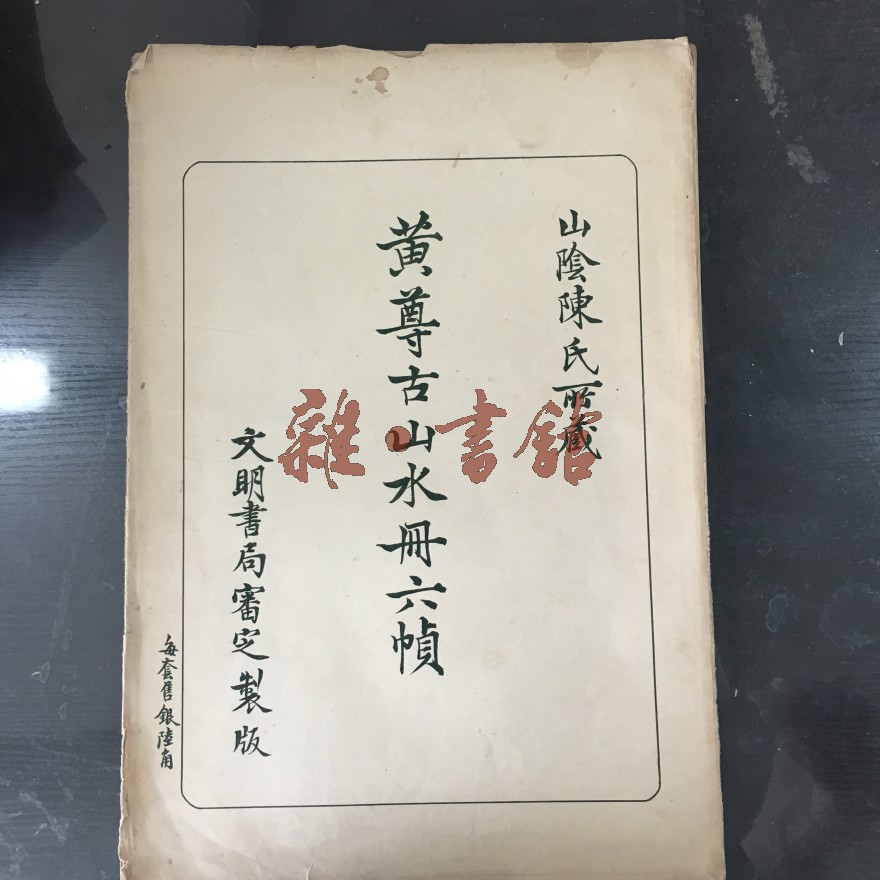 山陰陳氏所藏
黄尊古山水冊六幀
文明書局審定製版
每套售銀陸角
雜·書館